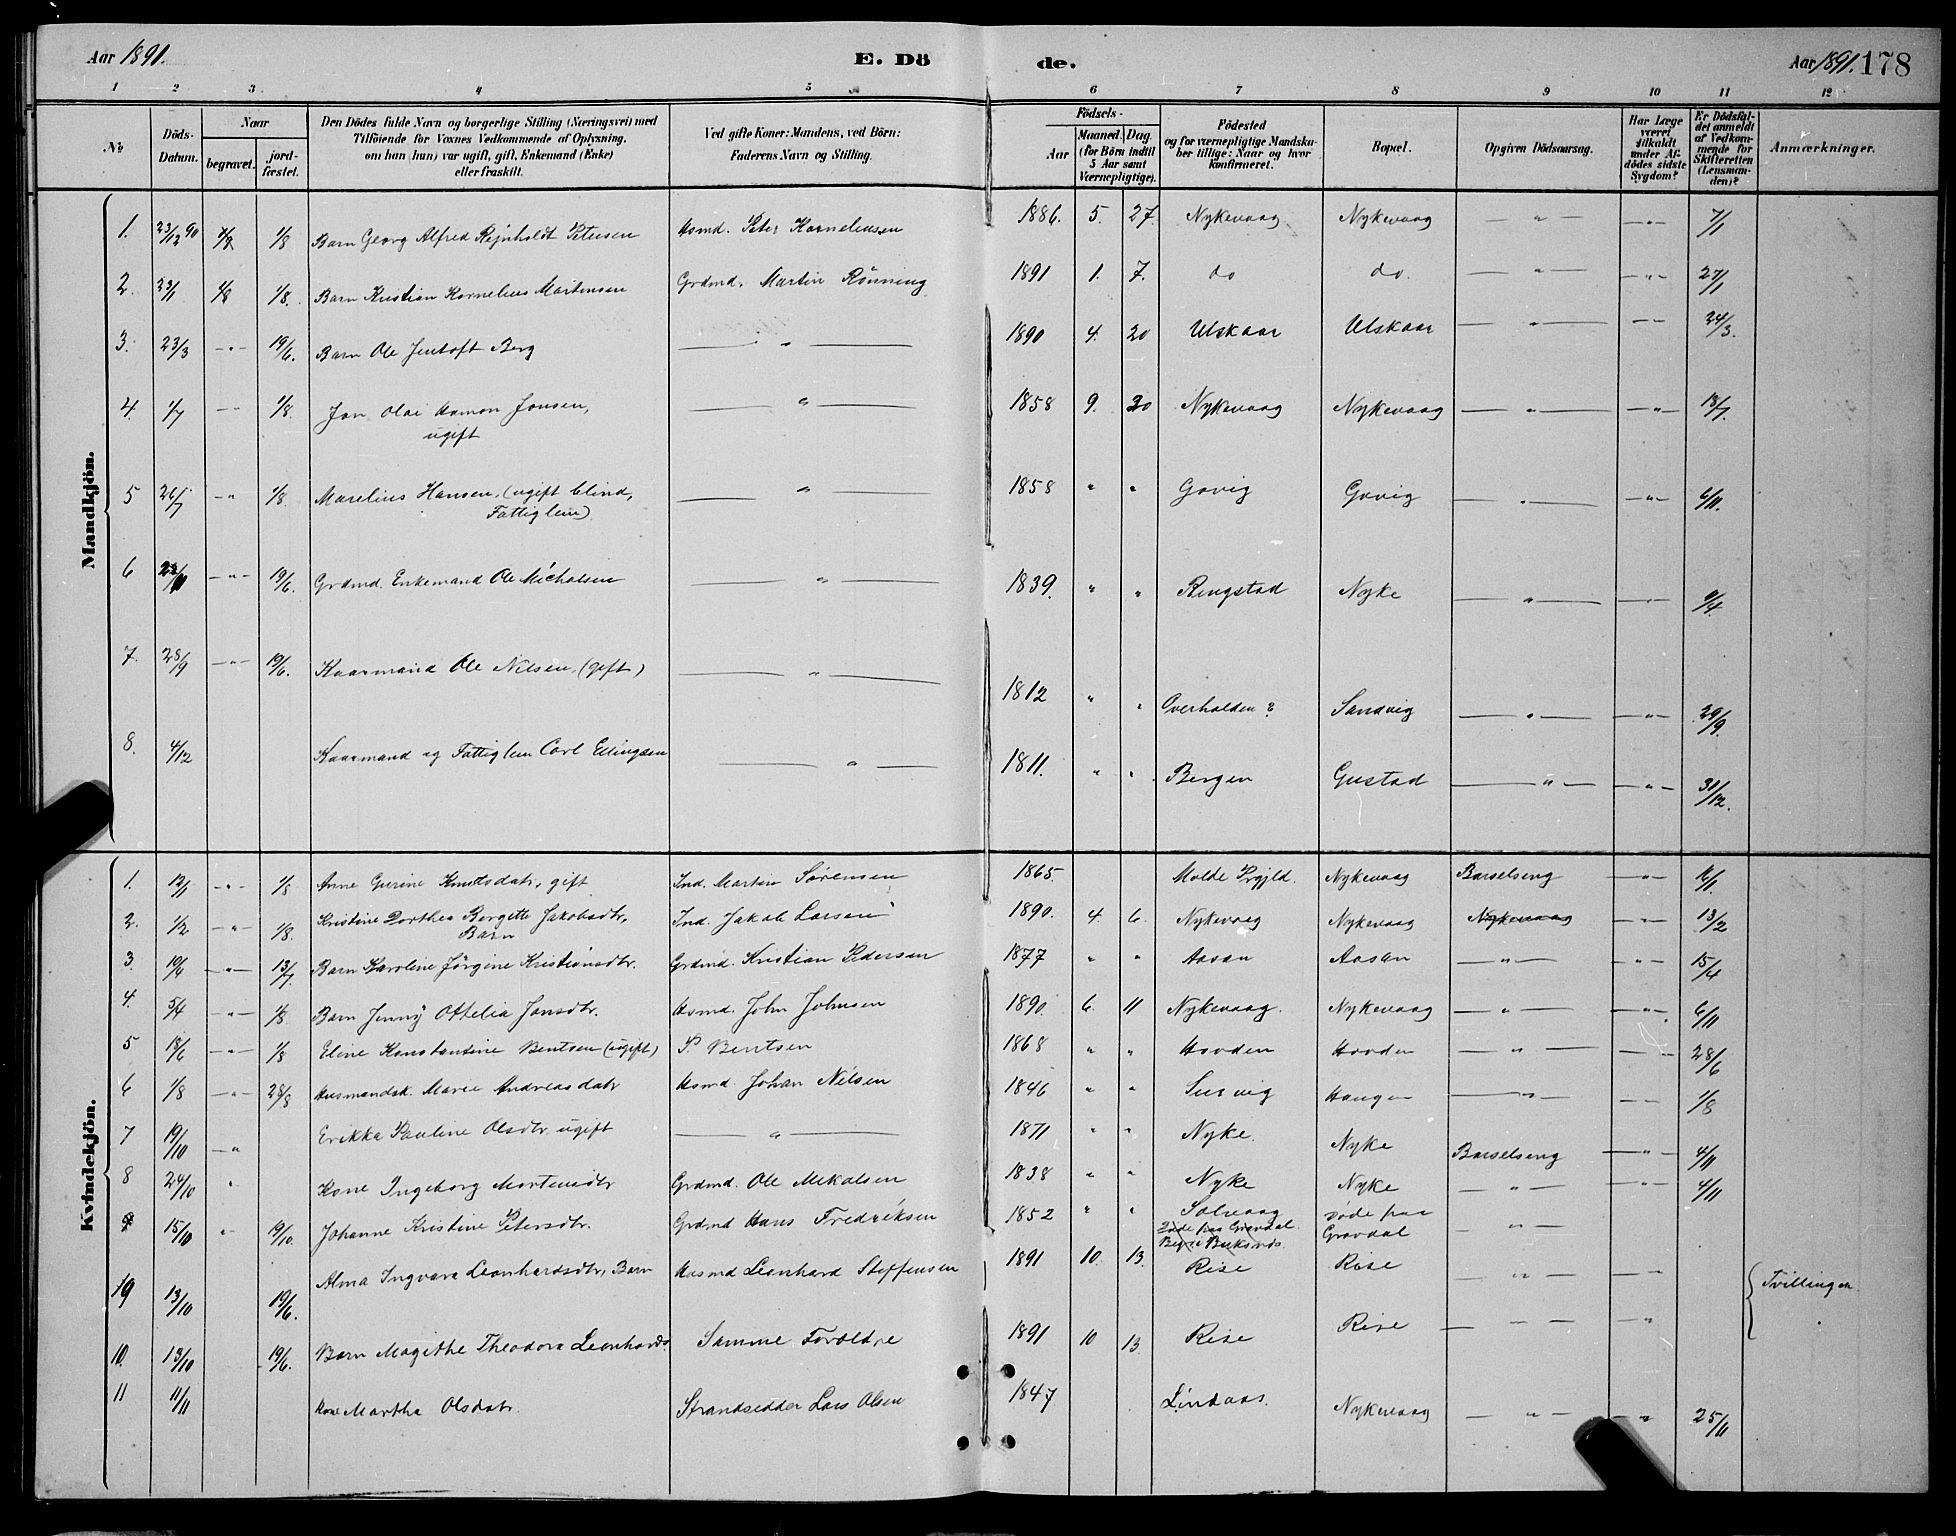 Aar 1891. E. Dö de. Aar 1891. 178
1 2 3 4 5 6 7 8 9 10 11 12
No
Döds-Datum.
Naar
begravet.
jord-fæstet.
Den Dödes fulde Navn og borgerlige Stilling (Næringsvei) med
Tilföiende for Voxnes Vedkommende af Oplysning,
om han (hun) var ugift, gift, Enkemand (Enke)
eller fraskilt.
Ved gifte Koner: Mandens, ved Börn:
Faderens Navn og Stilling.
Födsels-
Aar
Maaned. Dag.
(for Börn indtil
5 Aar samt
Værnepligtige).
Födested
og for værnepligtige Mandska-
ber tillige: Naar og hvor
konfirmeret.
Bopæl.
Opgiven Dödsaarsag.
Har Læge
været
tilkaldt
under Af-
dödes sidste
Sygdom?
Er Dödsfal-
det anmeldt
af Vedkom-
mende for
Skifteretten
(Lensman-
den)?
Anmærkninger.
Mandkjön.
1. 23/12 90 1/8 Barn Georg Alfred Rejnholdt Petersen Husmd. Peter Kornelinssen 1886. 5. 27. Nykevaag Nykevaag — " — — " — 7/1
2. 23/1 1/8 1/8. Barn Kristian Kornelius Martensen Grdmd. Martin Rönning 1891 1. 7. do do. — " — — " — 27/1
3. 23/3 — " — 19/6. Barn Ole Jentoft Berg — " — 1890 4. 20 Ulskaar Ulskaar — " — — " — 24/3.
4. 1/7 — " — 1/8. Jan Olai Aamon Jonsen,
ugift — " — 1858 9. 20 Nykevaag Nykevaag — " — — " — 13/7.
5 26/7 — " — 1/8 Marelius Hansen, (ugift blind,
Fattiglem) — " — 1858 " " Govig Govig — " — — " — 6/11.
6 — " — 19/6. Grdmd. Enkemand Ole Micholsen — " — 1839. " " Ringstad Nyke — " — — " — 9/4.
7. 28/9 — " — 19/6. Kaarmand Ole Nilsen, (gift) — " — 1812 " " Overhalden? Sandvig — " — — " — 29/9.
8. 4/12 Kaarmand og Fattiglem Carl Ellingsen — " — 1811. " " Bergen Gustad — " — — " — 31/12.
Kvindekjön.
1. 12/1 — " — 1/8 Anne Gurine Knudsdatr, gift Ind. Martin Sörensen 1865. Molde Prgjld. Nykevaag Barselseng — " —
2. 1/2 — " — 1/8. Kristine Dorthea Bergitte Jakobsdtr,
Barn Ind. Jakob Larsen 1890. 4. 6. Nykevaag Nykevaag Nykevaag — " — 13/2
3. — " — 13/7 Barn Karoline Jörgine Kristiansdtr. Grdmd. Kristian Pedersen 1877 " " Aasan Aasan — " — — " — 15/4
4. 5/4 — " — 1/8 Barn Jenny Othelia Jonsdtr. Husmd. John Johnsen 1890. 6. 11 Nykevaag. Nykevaag — " — — " — 6/11
5 18/6 — " — 1/8 Eline Konstantine Bentsen (ugift) P. Bentsen 1868 " " Hovden Hovden — " — — " — 28/6
6 1/8 — " — 28/8 Husmandsk. Marie Andreasdatr Husmd. Johan Nilsen 1846 " " Haugen — " — — " — 1/8
7 19/10 — " Erikka Pauline Olsdtr. ugift — " — 1871 " " Nyke. Nyke Barselseng — " — 4/11
8 24/10 " Kone Ingeborg Mortensdtr Grdmd. Ole Mikalsen 1838 " " Nyke Nyke — " — — " — 4/11
9 15/10 " 19/10. Johanne Kristine Petersdtr. Grdmd Hans Fredriksen 1852 " " Solvaag
Döde paa Gravdal
döde paa
Gravdal — " —
19 13/10 19/6. Alma Ingvara Leonhardsdtr, Barn Husmd Leonhard Steffensen 1891 10. 13. Rise Rise — " — — " — Tvillinger
10. 13/10 19/6. Barn Magithe Theodora Leonhards. Samme Foræeldre 1891 10 13. Rise Rise — " — "
11 11/11 Kone Martha Olsdatr. Strandsidder Lars Olsen 1847 Lindaas. Nykevaag — " — " 25/11